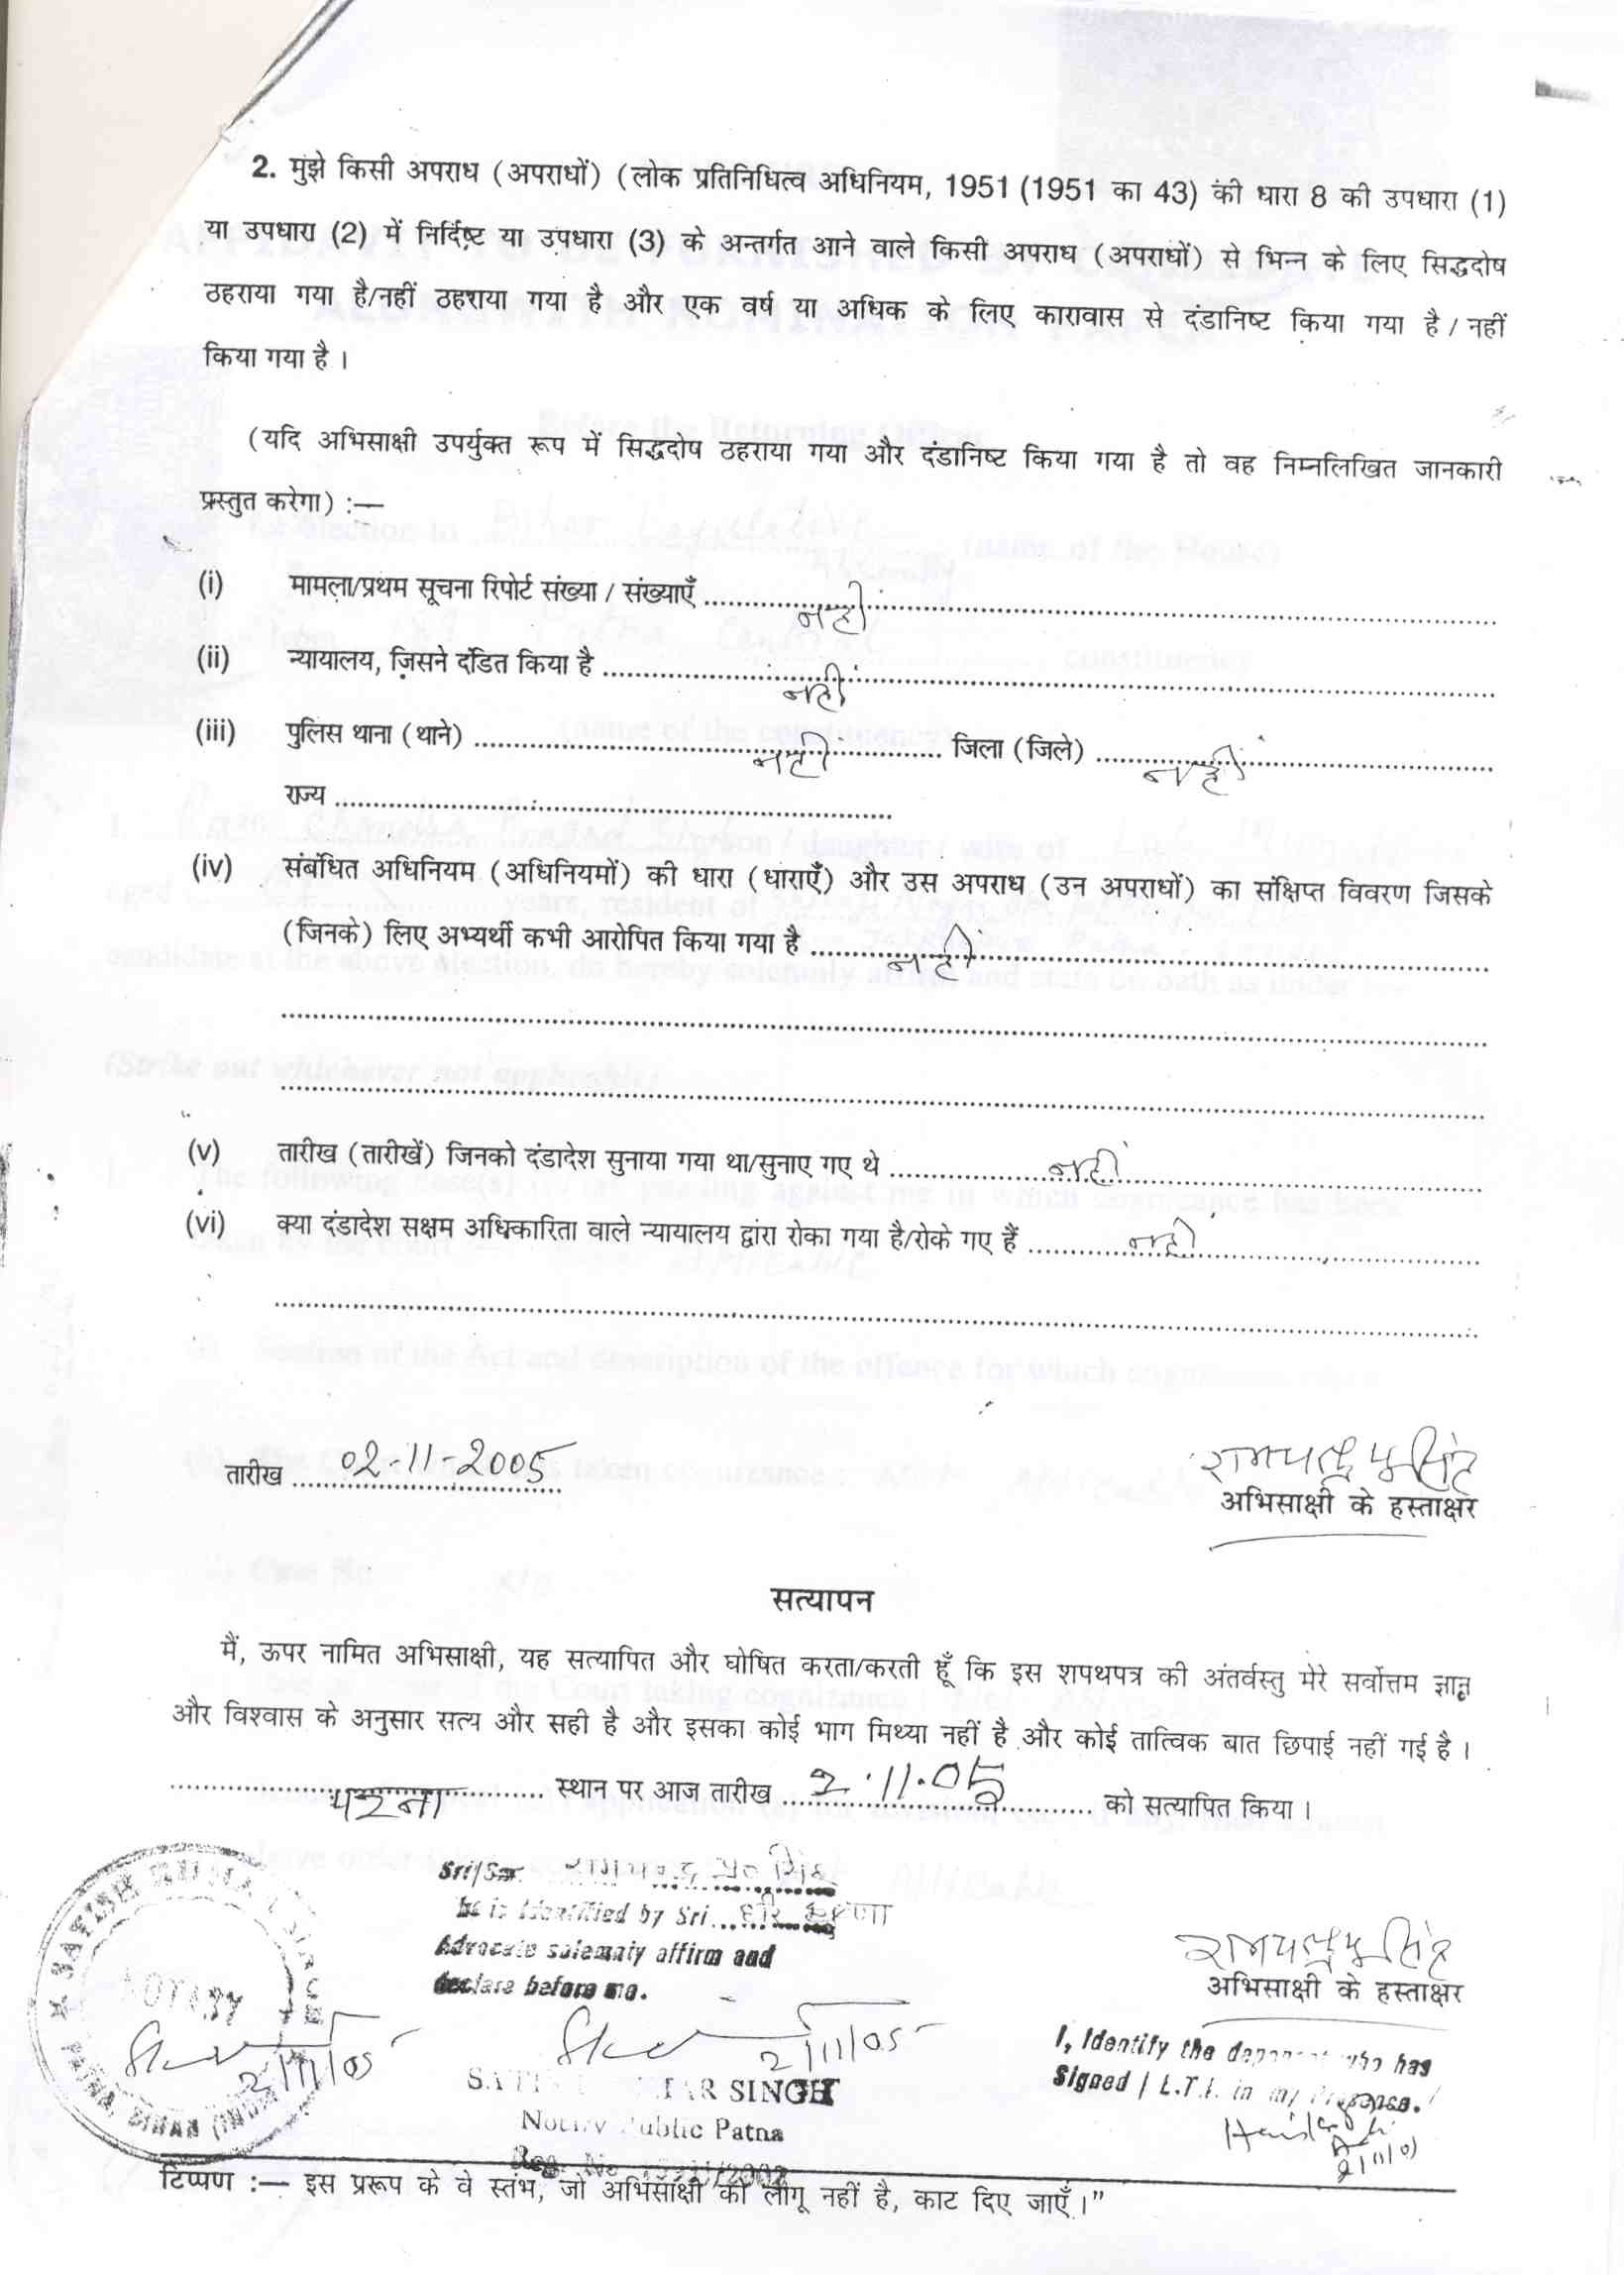 2. मुझे किसी अपराध (अपराधों) (लोक प्रतिनिधित्व अधिनियम, 1951 (1951 का 43) की धारा 8 की उपधारा (1)
या उपधारा (2) में निर्दिष्ट या उपधारा (3) के अन्तर्गत आने वाले किसी अपराध (अपराधों) से भिन्न के लिए सिद्धदोष
ठहराया गया है/नहीं ठहराया गया है और एक वर्ष या अधिक के लिए कारावास से दंडानिष्ट किया गया है / नहीं
किया गया है ।
(यदि अभिसाक्षी उपर्युक्त रूप में सिद्धदोष ठहराया गया और दंडानिष्ट किया गया है तो वह निम्नलिखित जानकारी
प्रस्तुत करेगा) :—
(i) मामला/प्रथम सूचना रिपोर्ट संख्या / संख्याएँ ..... नहीं
(ii) न्यायालय, जिसने दंडित किया है ..... नहीं
(iii) पुलिस थाना (थाने) ..... नहीं ..... जिला (जिले) ..... नहीं
राज्य .....
(iv) संबंधित अधिनियम (अधिनियमों) की धारा (धाराएँ) और उस अपराध (उन अपराधों) का संक्षिप्त विवरण जिसके
(जिनके) लिए अभ्यर्थी कभी आरोपित किया गया है ..... नहीं
(v) तारीख (तारीखें) जिनको दंडादेश सुनाया गया था/सुनाए गए थे ..... नहीं
(vi) क्या दंडादेश सक्षम अधिकारिता वाले न्यायालय द्वारा रोका गया है/रोके गए हैं ..... नहीं
तारीख ..... 02-11-2005
अभिसाक्षी के हस्ताक्षर
सत्यापन
मैं, ऊपर नामित अभिसाक्षी, यह सत्यापित और घोषित करता/करती हूँ कि इस शपथपत्र की अंतर्वस्तु मेरे सर्वोत्तम ज्ञान
और विश्वास के अनुसार सत्य और सही है और इसका कोई भाग मिथ्या नहीं है और कोई तात्विक बात छिपाई नहीं गई है ।
पटना ..... स्थान पर आज तारीख ..... 2.11.05 ..... को सत्यापित किया ।
Sri/Smt
he is identified by Sri
Advocate solemnly affirm and
declare before me.
अभिसाक्षी के हस्ताक्षर
I, Identify the deponent who has
Signed / L.T.I. in my Presence.
NOTARY
PATNA, BIHAR (INDIA)
2/11/05
2/11/05
SINGH
Notary Public Patna
टिप्पण :— इस प्ररूप के वे स्तंभ, जो अभिसाक्षी को लागू नहीं है, काट दिए जाएँ ।”